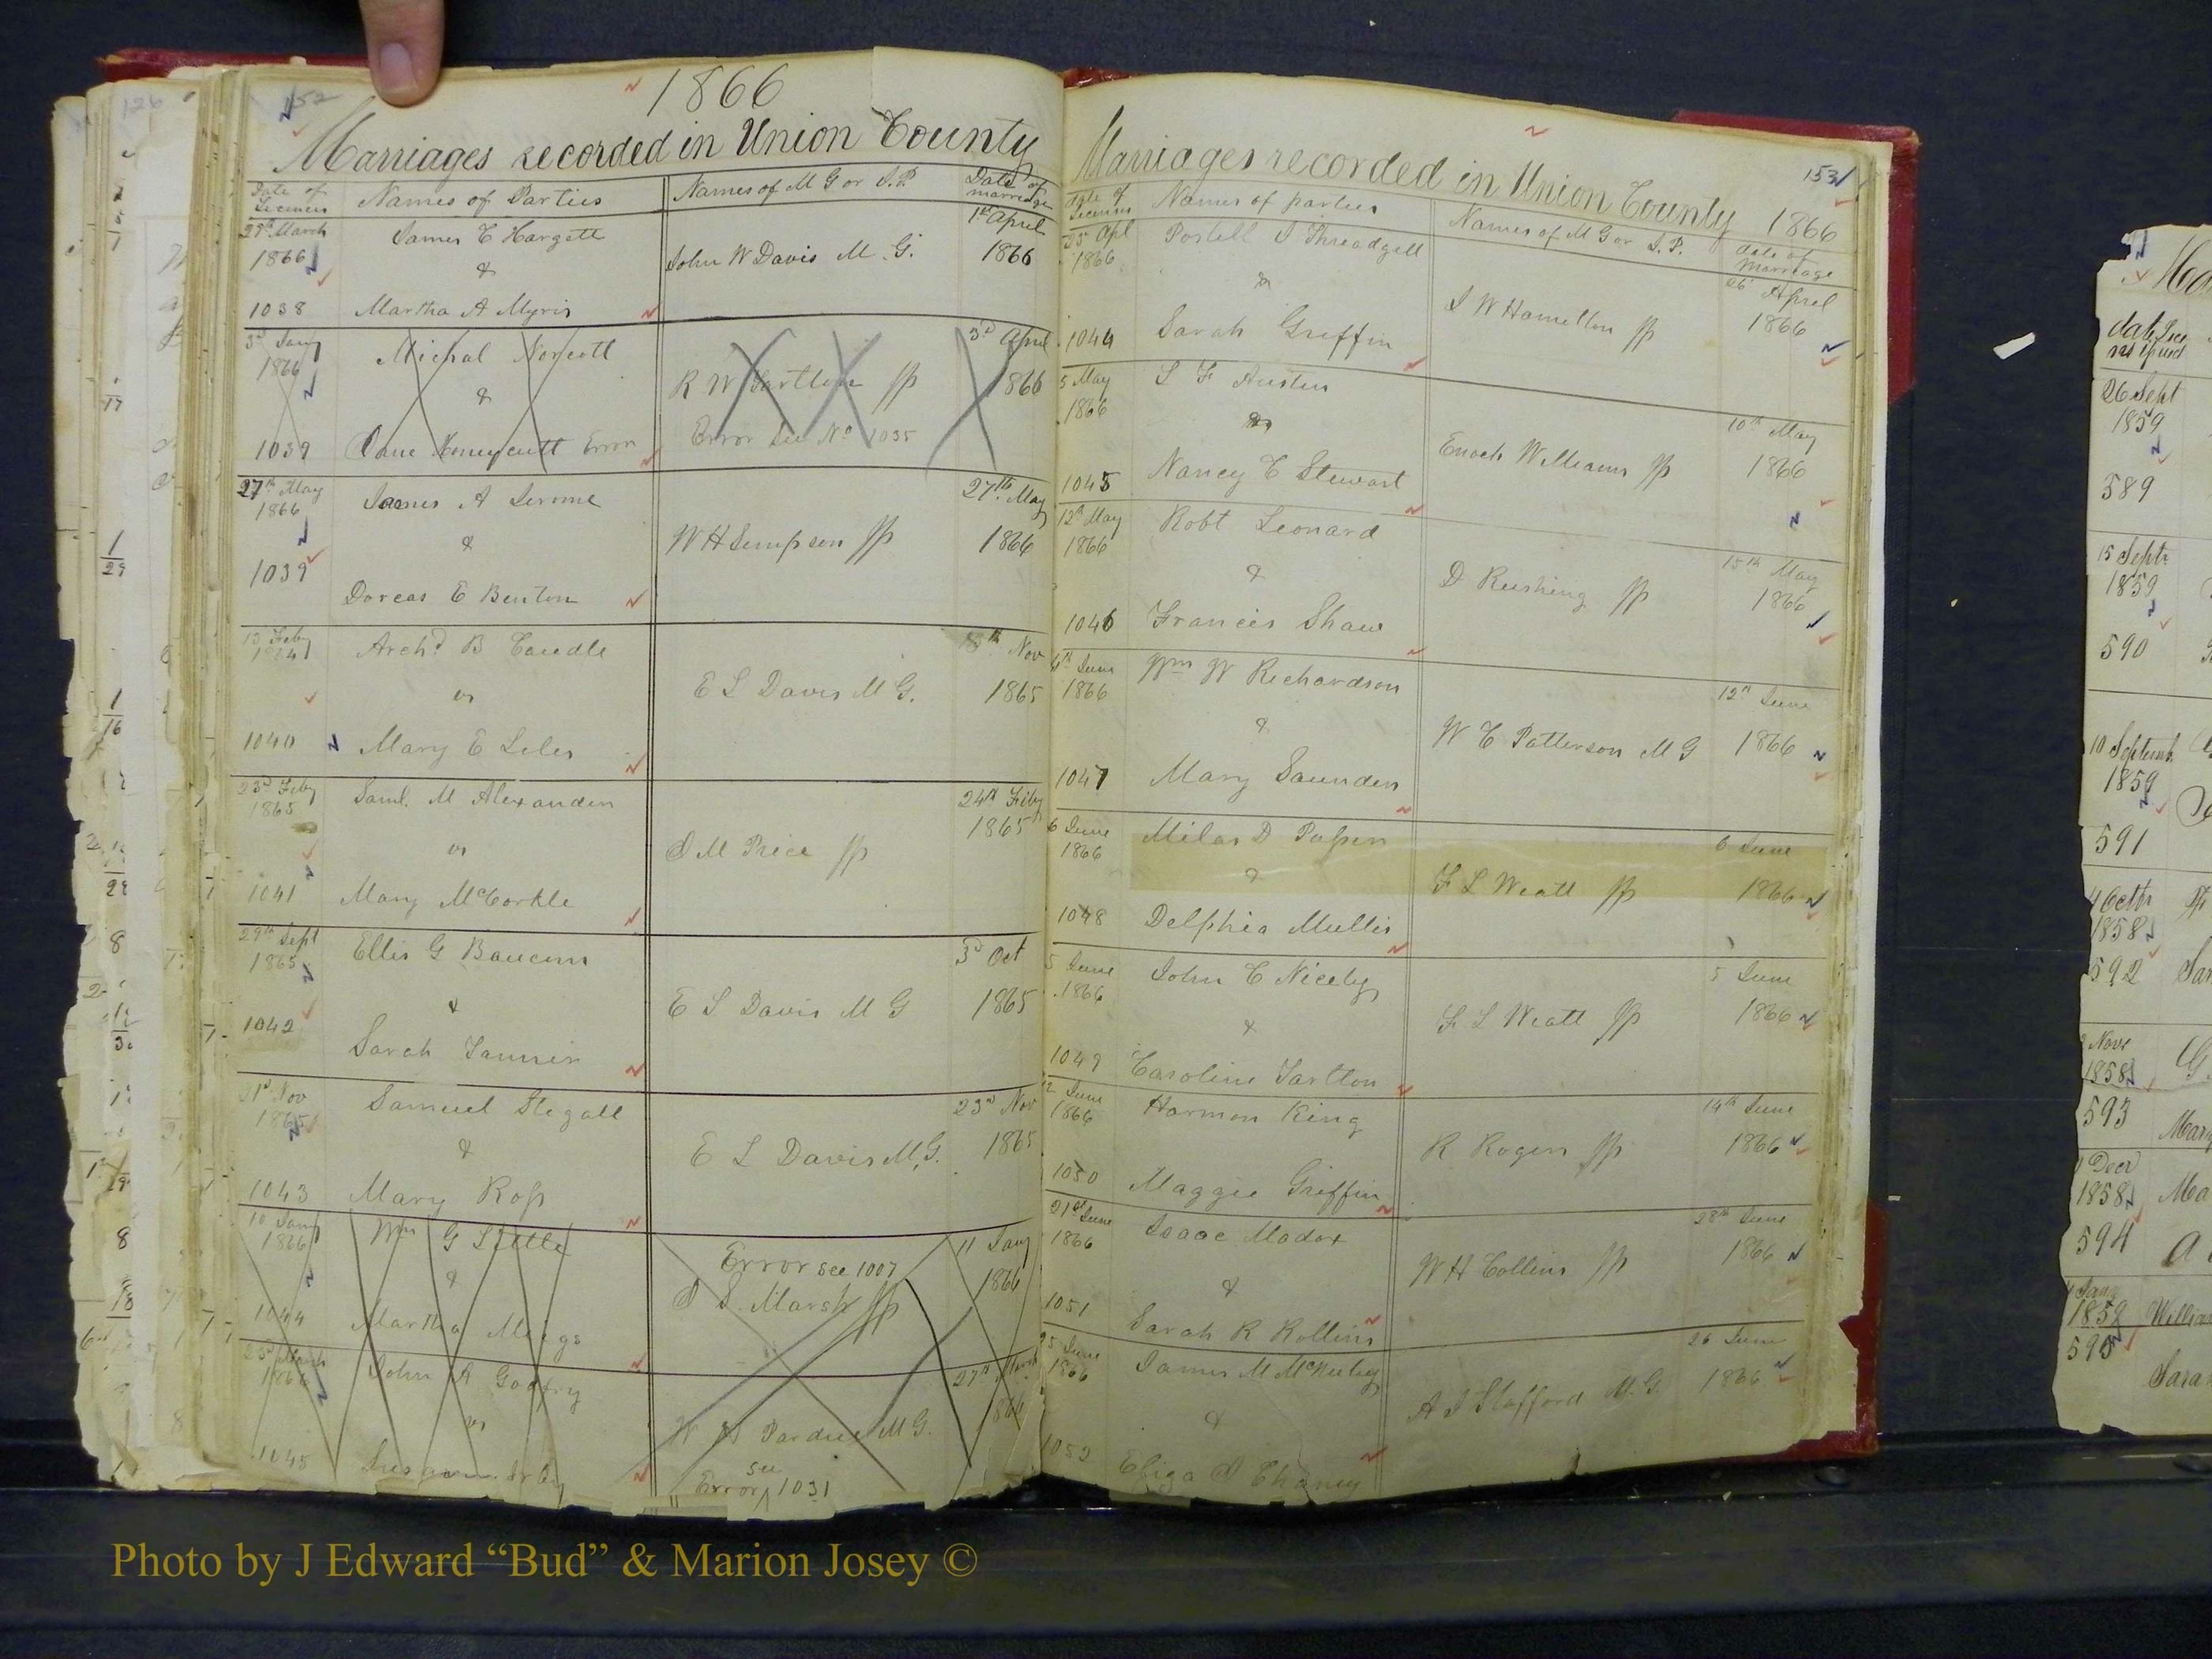 152
1866
Marriages recorded in Union County
Date of License
Names of Parties
Names of M G or J.P.
Date of marriage
29th March
1866
1038
James C Hargett
&
Martha A Myris
John W Davis M.G.
1st April
1866
3rd Jany
1866
1039
Michal Norcott
&
Jane Honeycutt Error
R W Tartlow JP
Error See No 1035
3rd April
1866
27th May
1866
1039
James A Jerome
&
Dorcas E Benton
W H Simpson JP
27th May
1866
13 Feby
1040
Archd B Caudle
or
Mary E Liles
E L Davis M G.
Nov
1865
23rd Feby
1865
1041
Saml. M Alexander
or
Mary McCorkle
J M Price JP
24th Feby
1865
29th Sept
1865
1042
Ellis G Baucom
&
Sarah
E L Davis M G
3rd Oct
1865
Nov
1865
1043
Samuel Stegall
&
Mary Ross
E L Davis M.G.
23rd Nov
1865
10 Jany
1866
1044
Wm G Little
&
Martha Meigs
Error see 1007
Marsh JP
11 Jany
1866
March
1866
1045
John A Godfry
or
W Pardue M G.
Error see 1031
27th
Marriages recorded in Union County 1866
153
Date of License
Names of parties
Names of M G or J.P.
date of marriage
25 Apl
1866
1044
Postell J Threadgill
&
Sarah Griffin
J W Hamelton JP
26 April
1866
5 May
1866
1045
J F Austin
&
Nancy C Stewart
Enoch Williams JP
10th May
1866
12th May
1866
1046
Robt Leonard
&
Francis Shaw
D Rushing JP
15th May
1866
June
1866
1047
Wm W Richardson
&
Mary Saunders
W C Patterson M G
12th June
1866
6 June
1866
1048
Milas D
&
Delphia Mullis
F L Wiatt JP
6 June
1866
5 June
1866
1049
John C Niceley
&
Caroline Tartton
F L Wiatt JP
5 June
1866
12 June
1866
1050
Harmon King
Maggie Griffin
R Rogers JP
14th June
1866
21st June
1866
1051
Isaac Madox
&
Sarah R Rollins
W H Collins JP
28th June
1866
25 June
1866
1052
James M McNeeley
&
Eliza J Chaney
A J Stafford M.G.
26 June
1866
date Lice
issued
26 Sept
1859
589
15 Septr
1859
590
10 Septemb.
1859
591
4 Octr
1858
592
Nove
1858
593
Decr
1858
594
Jany
1859
595
Photo by J Edward “Bud” & Marion Josey ©